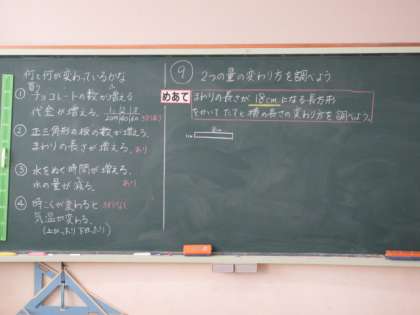 何と何が変わっているかな
① チョコレートの数が増える
代金が増える。
② 正三角形の板の数が増える。
まわりの長さが増える。あり
③ 水をぬく時間が増える。
水の量が減る。あり
④ 時こくが変わると
気温が変わる。
⑨ 2つの量の変わり方を調べよう
めあて まわりの長さが18cmになる長方形
をかいて たてと横の長さの変わり方を調べよう。